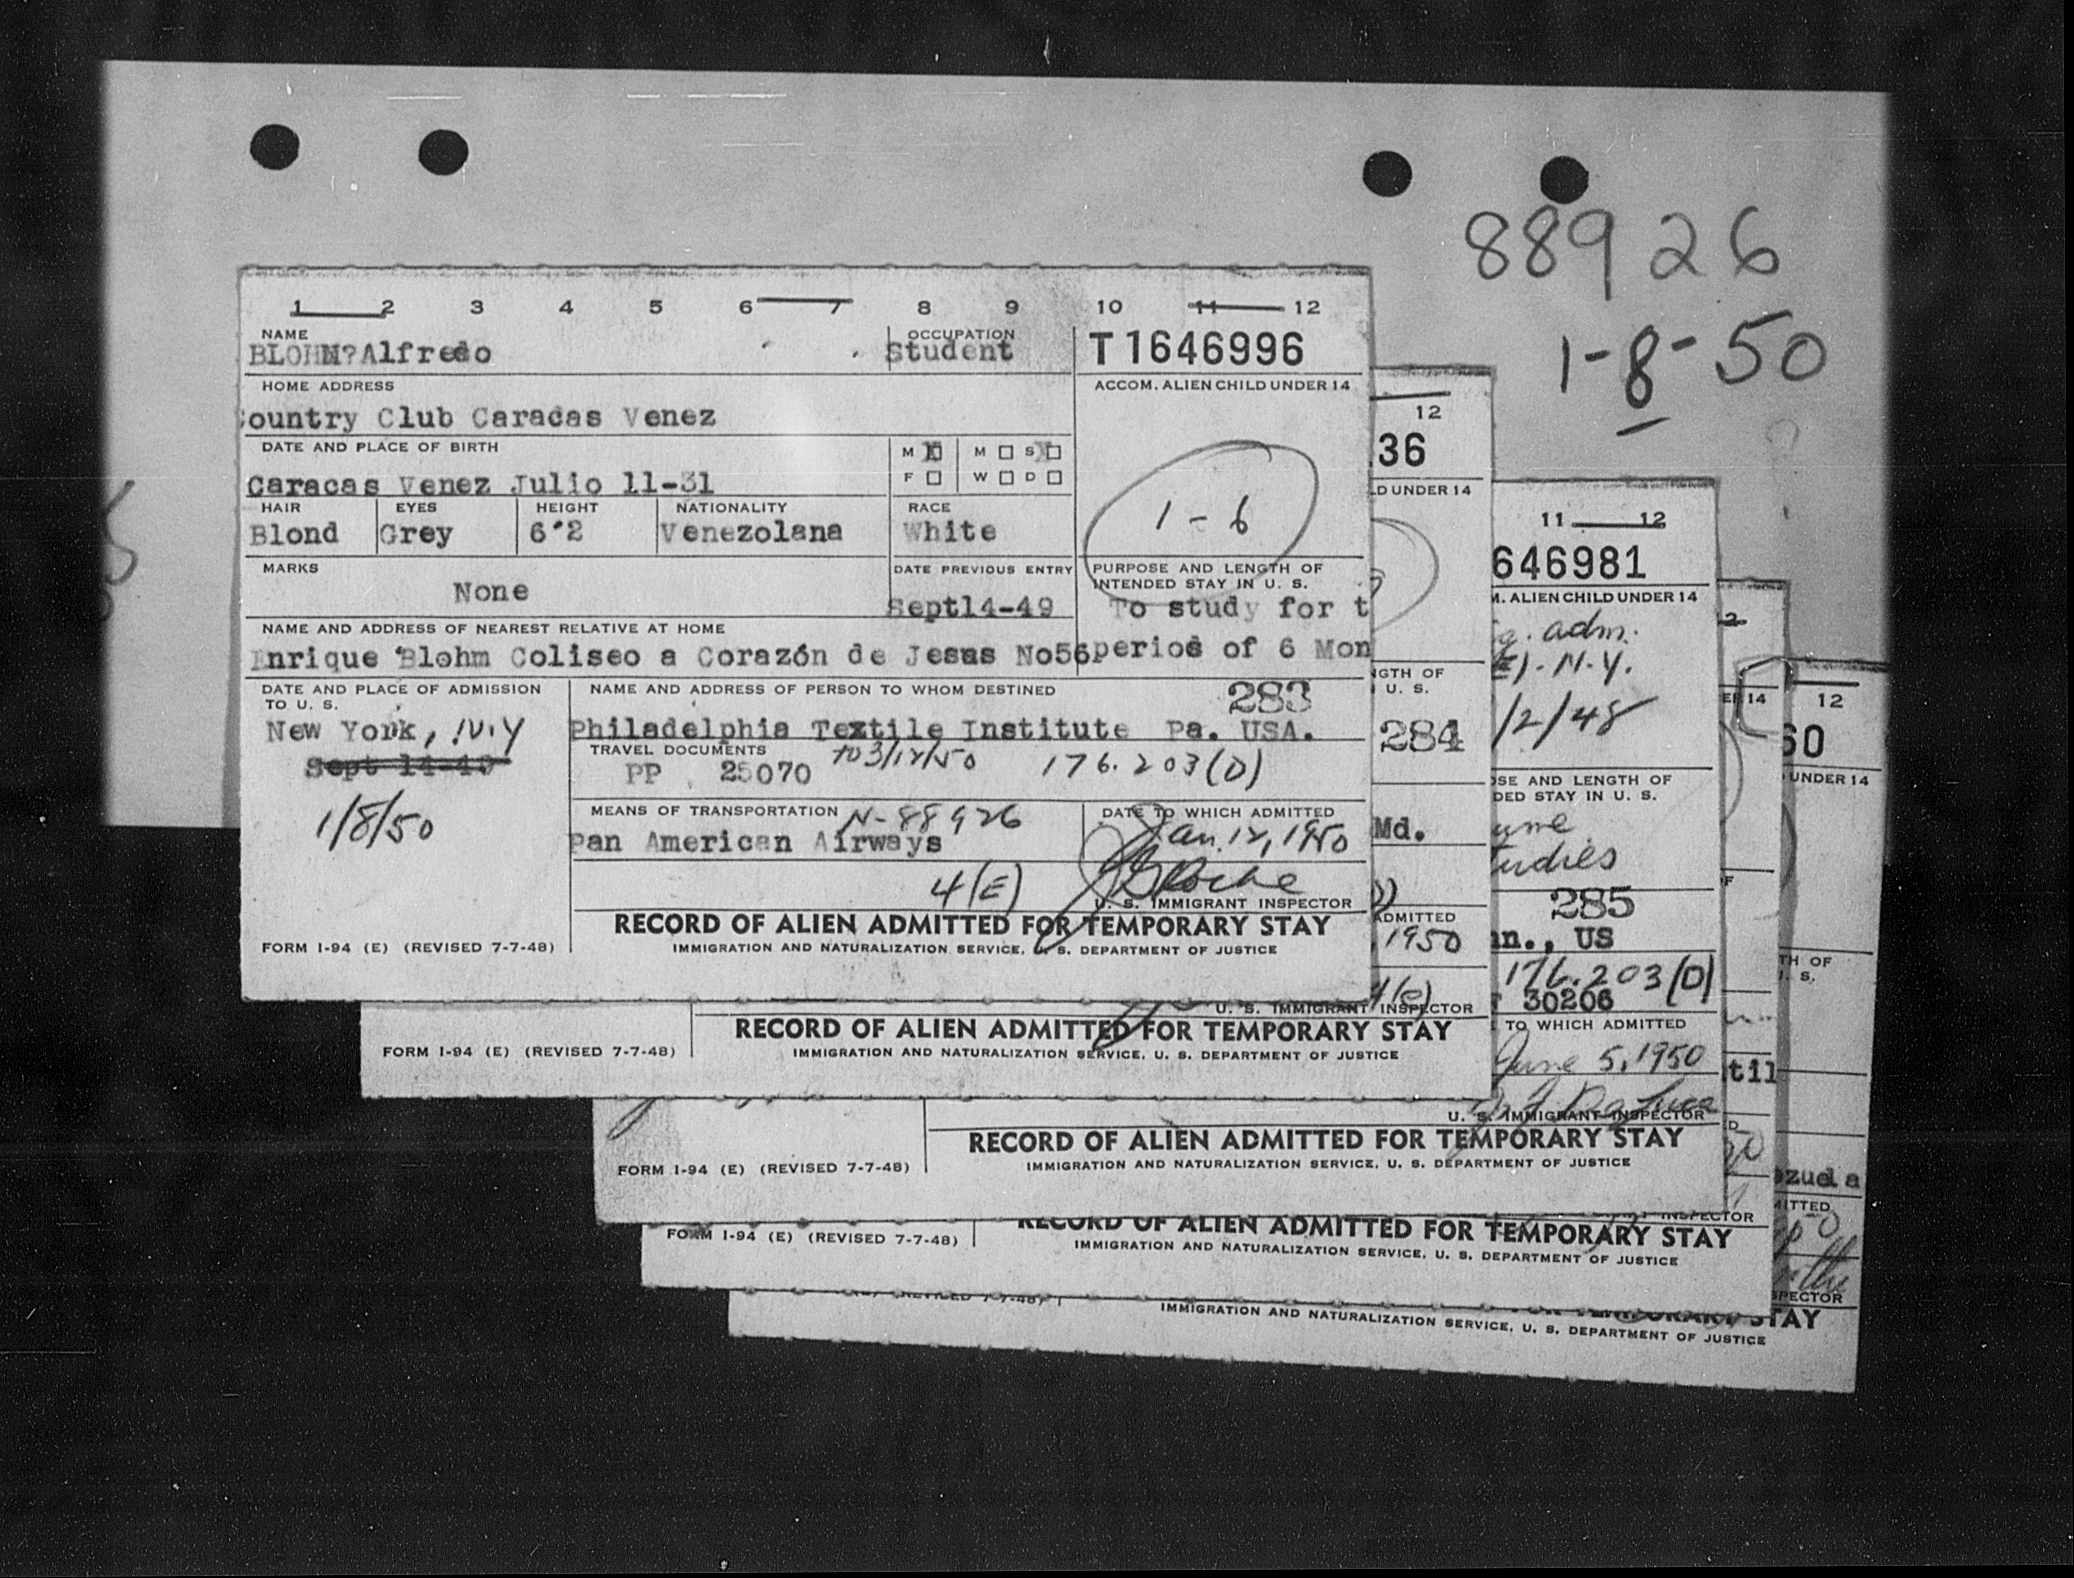 88926
1-8-50
1 2 3 4 5 6 7 8 9 10 11 12
NAME
BLOHM?Alfredo
OCCUPATION
Student
T1646996
HOME ADDRESS
ountry Club Caracas Venez
ACCOM. ALIEN CHILD UNDER 14
1-6
DATE AND PLACE OF BIRTH
Caracas Venez Julio 11-31
M X M S X
F W D
HAIR EYES HEIGHT NATIONALITY RACE
Blond Grey 6'2 Venezolana White
MARKS
None
DATE PREVIOUS ENTRY
Sept14-49
PURPOSE AND LENGTH OF
INTENDED STAY IN U. S.
To study for t
period of 6 Mon
NAME AND ADDRESS OF NEAREST RELATIVE AT HOME
Enrique Blohm Coliseo a Corazón de Jesus No56
DATE AND PLACE OF ADMISSION
TO U. S.
New York, N.Y
Sept 14-49
1/8/50
NAME AND ADDRESS OF PERSON TO WHOM DESTINED
283
Philadelphia Textile Institute Pa. USA.
TRAVEL DOCUMENTS
to 3/12/50
176.203(D)
PP 25070
MEANS OF TRANSPORTATION
N-88926
Pan American Airways
DATE TO WHICH ADMITTED
Jan. 12, 1950
4(E)
U. S. IMMIGRANT INSPECTOR
RECORD OF ALIEN ADMITTED FOR TEMPORARY STAY
FORM I-94 (E) (REVISED 7-7-48)
IMMIGRATION AND NATURALIZATION SERVICE, U. S. DEPARTMENT OF JUSTICE
12
36
LD UNDER 14
GTH OF
U. S.
284
Md.
ADMITTED
1950
U. S. IMMIGRANT INSPECTOR
RECORD OF ALIEN ADMITTED FOR TEMPORARY STAY
FORM I-94 (E) (REVISED 7-7-48)
IMMIGRATION AND NATURALIZATION SERVICE, U. S. DEPARTMENT OF JUSTICE
11 12
646981
M. ALIEN CHILD UNDER 14
adm.
N.Y.
/2/48
OSE AND LENGTH OF
DED STAY IN U. S.
tudies
285
nn., US
176.203(D)
30206
TO WHICH ADMITTED
June 5, 1950
U. S. IMMIGRANT INSPECTOR
RECORD OF ALIEN ADMITTED FOR TEMPORARY STAY
FORM I-94 (E) (REVISED 7-7-48)
IMMIGRATION AND NATURALIZATION SERVICE, U. S. DEPARTMENT OF JUSTICE
ER 14
til
INSPECTOR
RECORD OF ALIEN ADMITTED FOR TEMPORARY STAY
FORM I-94 (E) (REVISED 7-7-48)
IMMIGRATION AND NATURALIZATION SERVICE, U. S. DEPARTMENT OF JUSTICE
12
60
UNDER 14
TH OF
. S.
ezuela
MITTED
SPECTOR
TEMPORARY STAY
IMMIGRATION AND NATURALIZATION SERVICE, U. S. DEPARTMENT OF JUSTICE